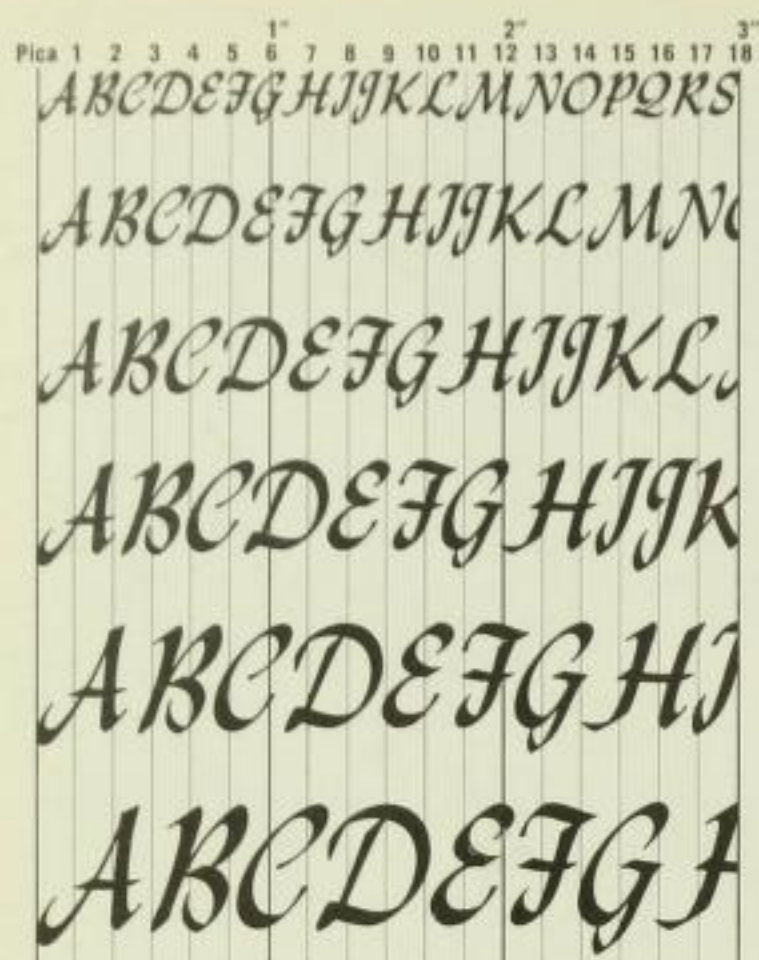 1" 2" 3"
Pica 1 2 3 4 5 6 7 8 9 10 11 12 13 14 15 16 17 18
ABCDEFGHIJKLMNOPQRS
ABCDEFGHIJKLMNO
ABCDEFGHIJKL
ABCDEFGHIJK
ABCDEFGHI
ABCDEFGH